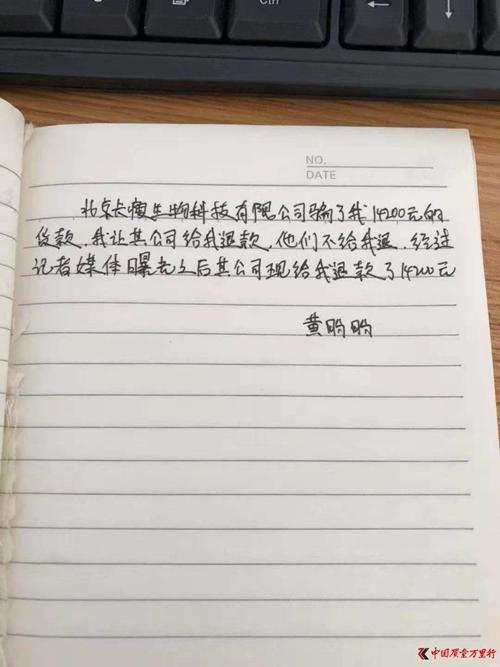 Ctrl
NO.
DATE
北京长瘦生物科技有限公司骗了我14200元的
货款,我让其公司给我退款,他们不给我退,经过
记者媒体曝光之后其公司现给我退款了14200元
黄盼盼
中国质量万里行